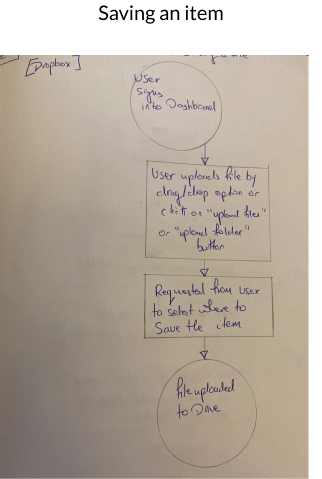 Saving an item
[Dropbox]
User
signs
into Dashboard
User uploads file by
drag/drop option or
click on "upload files"
or "upload folder"
button
Requested from user
to select where to
Save the item
file uploaded
to Drive